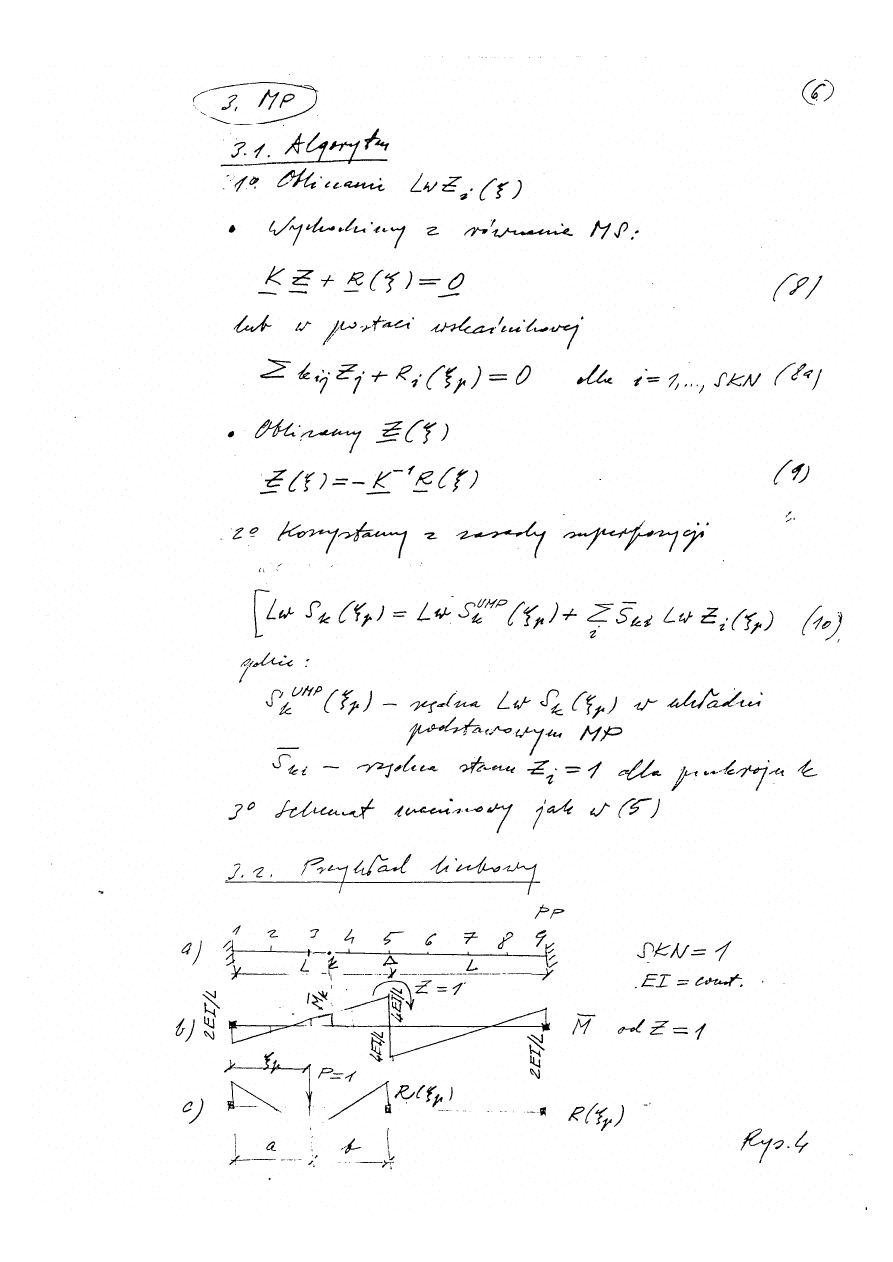 3. MP
6
3.1. Algorytm
1º Obliczanie Lw Z_i(ξ)
• Wychodzimy z równania MS:
K Z + R(ξ) = 0 (8)
lub w postaci wskaźnikowej
Σ k_ij Z_j + R_i(ξ_p) = 0 dla i = 1,..., SKN (8a)
• Obliczamy Z(ξ)
Z(ξ) = -K^-1 R(ξ) (9)
2º Korzystamy z zasady superpozycji
[Lw S_k(ξ_p) = Lw S_k^UMP(ξ_p) + Σ_i S̄_ki Lw Z_i(ξ_p) (10)
gdzie:
S_k^UMP(ξ_p) – rzędna Lw S_k(ξ_p) w układzie
podstawowym MP
S̄_ki – rzędna stanu Z_i = 1 dla punktu k
3º Schemat macierzowy jak w (5)
3.2. Przykład liczbowy
PP
a) 1 2 3 4 5 6 7 8 9 SKN = 1
L k L EI = const.
b) 2EI/L M̄_k 4EI/L 4EI/L Z = 1 2EI/L M̄ od Z = 1
ξ_p P=1
c) R(ξ_p) R(ξ_p)
a b
Rys.4